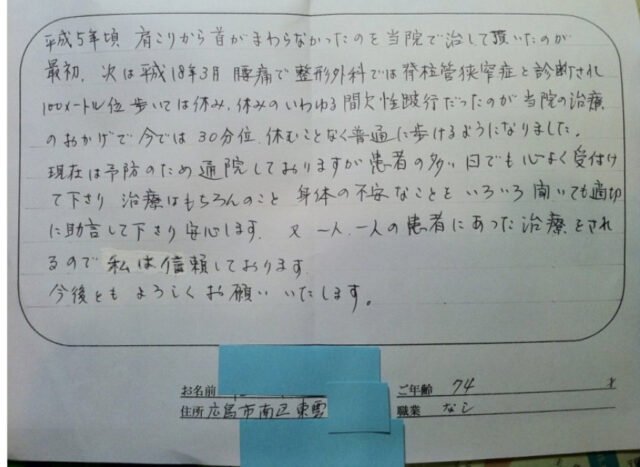 平成5年頃 肩こりから首がまわらなかったのを当院で治して頂いたのが
最初、次は平成18年3月 腰痛で整形外科では脊柱管狭窄症と診断され
100メートル位歩いては休み、休みのいわゆる間欠性跛行だったのが当院の治療
のおかげで今では30分位、休むことなく普通に歩けるようになりました。
現在は予防のため通院しておりますが患者の多い日でも心よく受付け
て下さり 治療はもちろんのこと 身体の不安なことをいろいろ聞いても適切
に助言して下さり安心します、又 一人、一人の患者にあった治療をされ
るので 私は信頼しております
今後ともよろしくお願いいたします。
お名前 ご年齢 74 才
住所 広島市南区東雲 職業 なし